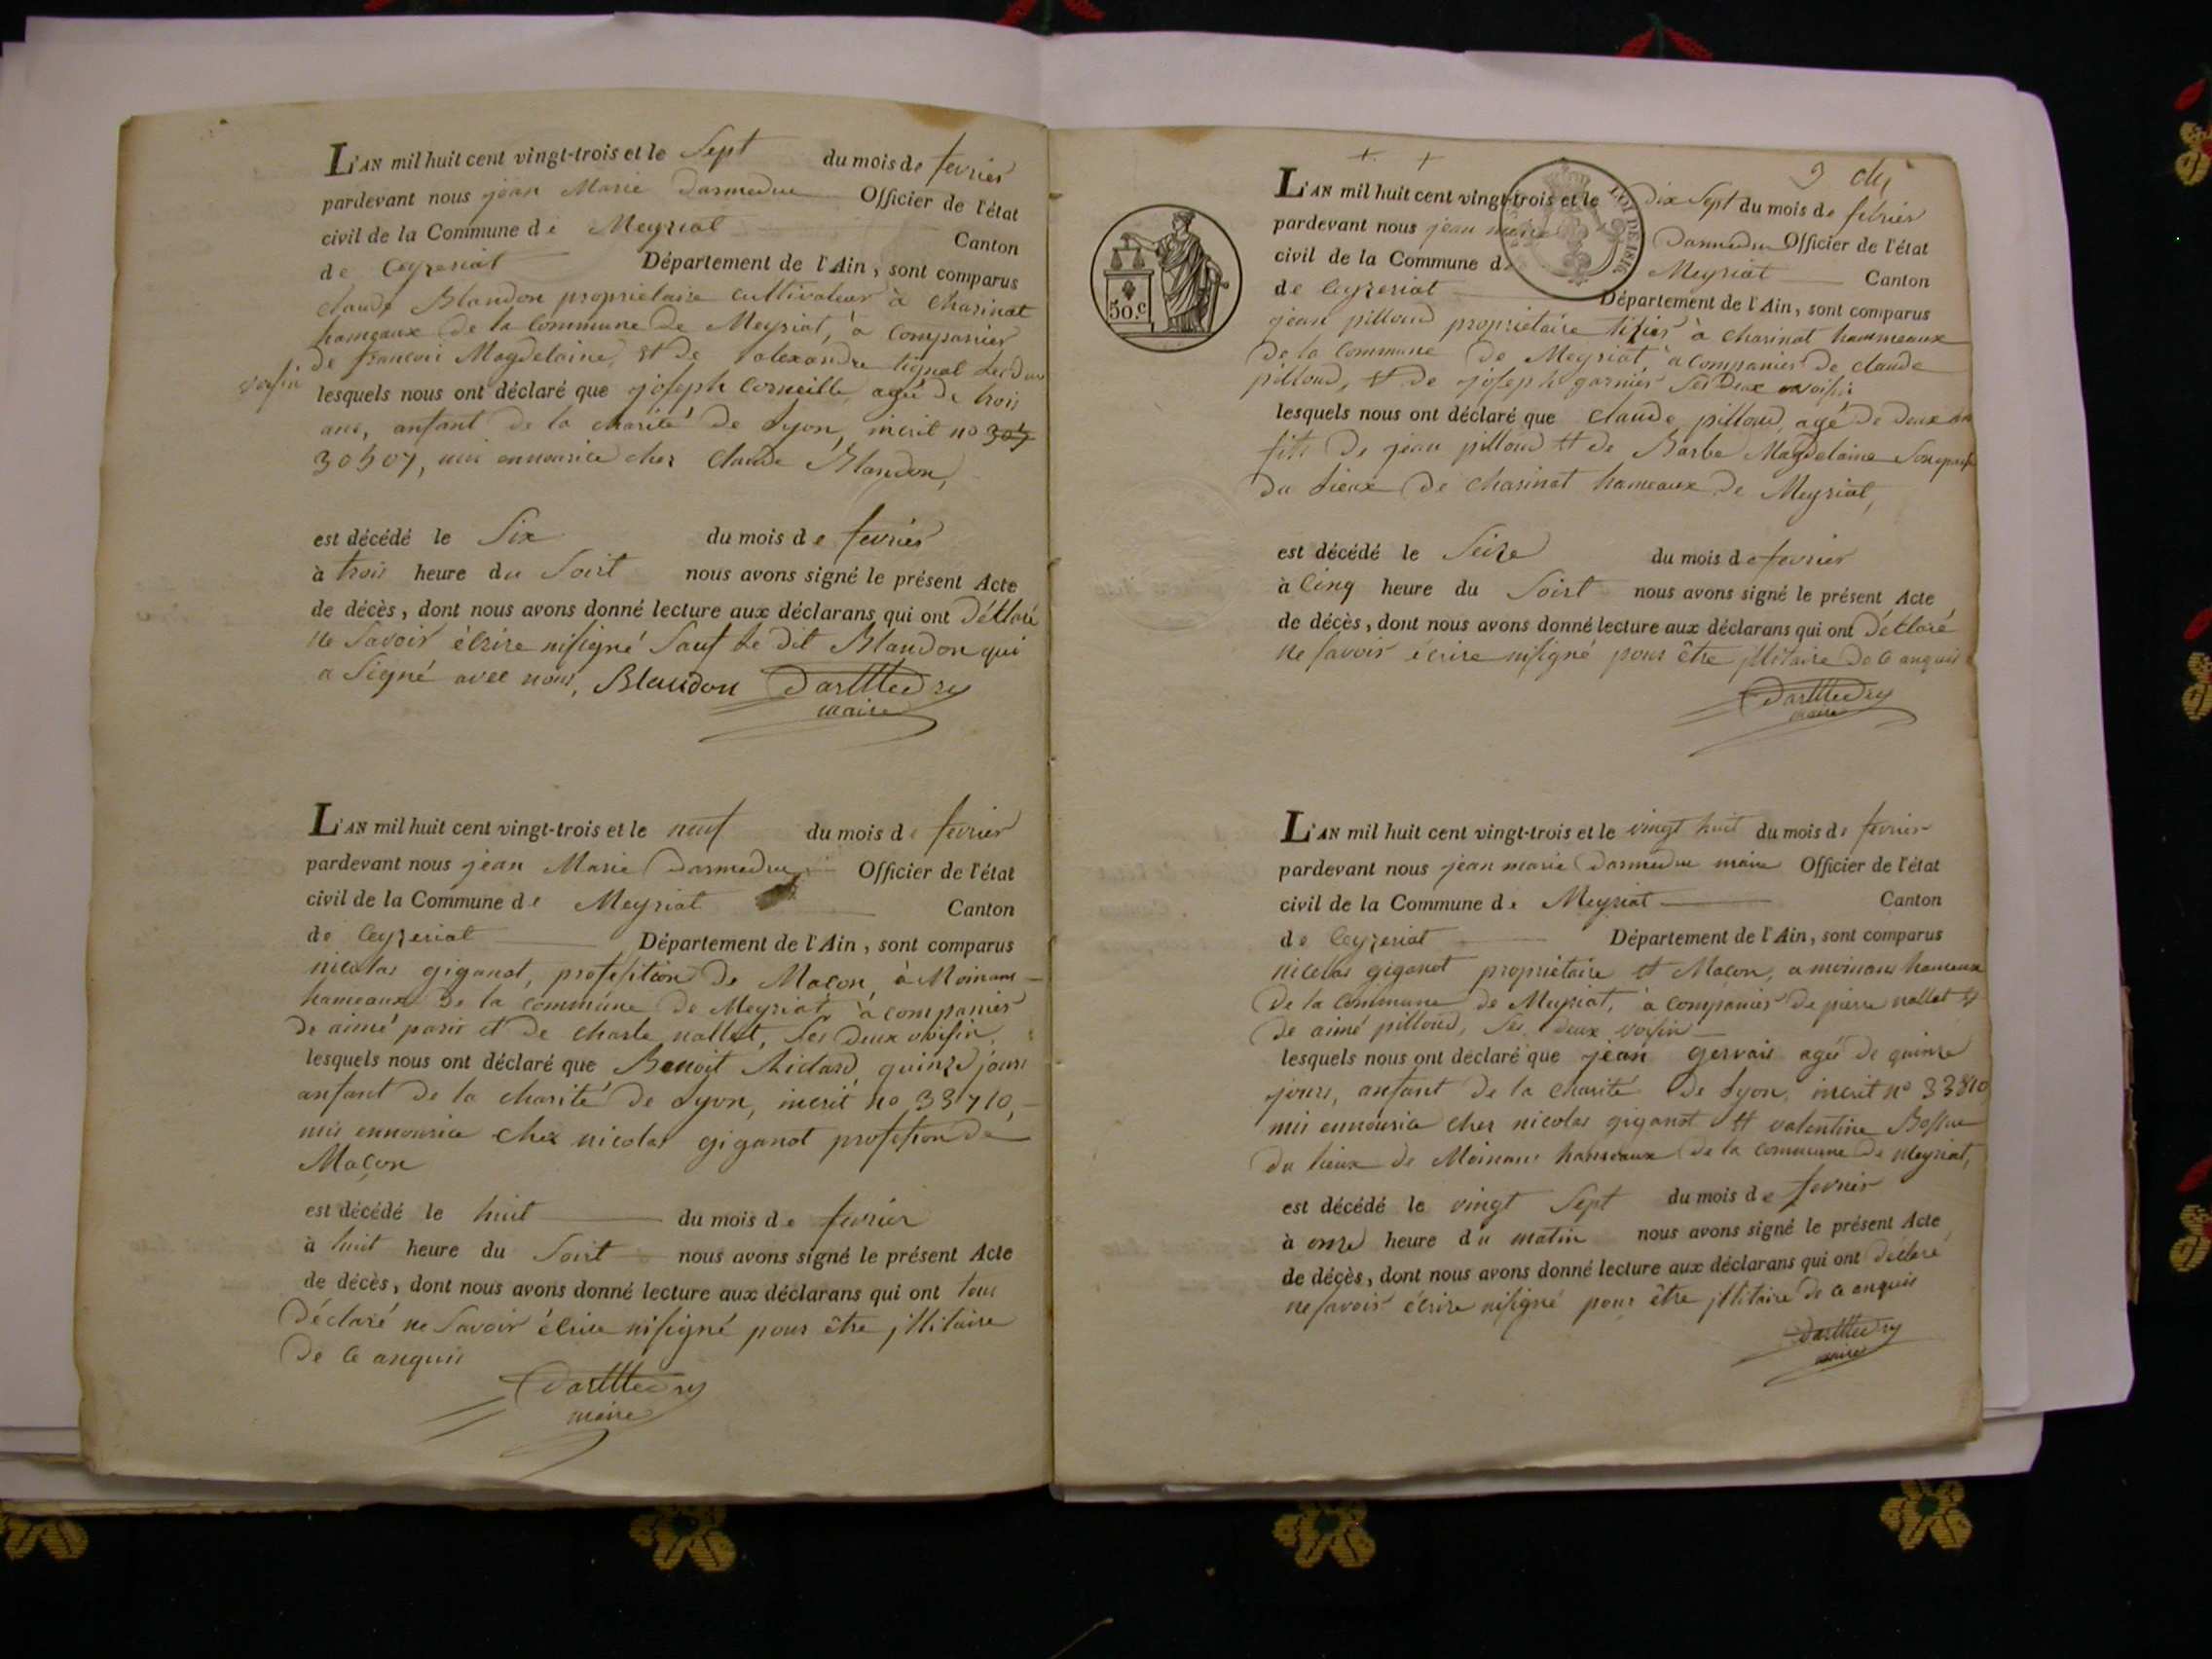 L'AN mil huit cent vingt-trois et le Sept du mois de fevrier
pardevant nous jean Marie Darmedru Officier de l'état
civil de la Commune de Meyriat Canton
de Ceyzeriat Département de l'Ain, sont comparus
claude Blandon proprietaire cultivateur à Charinat
hameaux de la Commune de Meyriat, à companier
de francois Magdelaine, et de alexandre tignat
voisin
lesquels nous ont déclaré que joseph Corneille agé de trois
ans, anfant de la charité de Lyon, inerit no 305
30507, mis ennourice cher Claude Blandon,
est décédé le Six du mois de fevrier
à trois heure du Soirt nous avons signé le présent Acte
de décès, dont nous avons donné lecture aux déclarans qui ont Déclaré
ne Savoir écrire nisigné Sauf le dit Blandon qui
a Signé avec nous, Blandon Darmedru
maire
L'AN mil huit cent vingt-trois et le neuf du mois de fevrier
pardevant nous jean Marie Darmedru Officier de l'état
civil de la Commune de Meyriat Canton
de Ceyzeriat Département de l'Ain, sont comparus
nicolas giganot, profession de Macon, à Moinans
hameaux de la commune de Meyriat, à companier
de aimé paris et de charle nallet, Ses Deux voisin,
lesquels nous ont déclaré que Benoit Richard quinze jours
anfant de la charité de Lyon, inerit no 33710,
mis ennourice chez nicolas giganot profession de
Macon
est décédé le huit du mois de fevrier
à huit heure du Soirt nous avons signé le présent Acte
de décès, dont nous avons donné lecture aux déclarans qui ont tous
Déclaré ne Savoir écrire nisigné pour être jllitaire
De ce anquis
Darmedru
maire
9
50.c
LOI DE 1816
L'AN mil huit cent vingt-trois et le Dix Sept du mois de février
pardevant nous jean marie Darmedru Officier de l'état
civil de la Commune de Meyriat Canton
de Ceyzeriat Département de l'Ain, sont comparus
jean pilloud proprietaire tixier à charinat hammeaux
De la Commune de Meyriat à companier de claude
pilloud, et de joseph garnier Ses Deux voisin
lesquels nous ont déclaré que Claude pilloud, agé de deux ans
fils de jean pilloud et de Barbe Magdelaine Son epouse
du Lieux de Charinat hameaux de Meyriat,
est décédé le Seize du mois de fevrier
à Cinq heure du Soirt nous avons signé le présent Acte
de décès, dont nous avons donné lecture aux déclarans qui ont Déclaré
ne Savoir écrire nisigné pour être jllitaire De ce anquis
Darmedru
maire
L'AN mil huit cent vingt-trois et le vingt huit du mois de fevrier
pardevant nous jean marie Darmedru maire Officier de l'état
civil de la Commune de Meyriat Canton
de Ceyzeriat Département de l'Ain, sont comparus
nicolas giganot proprietaire et Macon, a moinans hameaux
De la Commune de Meyriat, à companier de pierre nallet et
De aimé pilloud, Ses deux voisin
lesquels nous ont déclaré que jean gervais agé de quinze
jours, anfant de la charité de Lyon, inerit no 33810
mis ennourice cher nicolas giganot et valentine Bossue
du lieux de Moinans hameaux De la commune de Meyriat,
est décédé le vingt Sept du mois de fevrier
à onze heure du matin nous avons signé le présent Acte
de décès, dont nous avons donné lecture aux déclarans qui ont Déclaré
ne Savoir écrire nisigné pour être jllitaire De ce anquis
Darmedru
maire